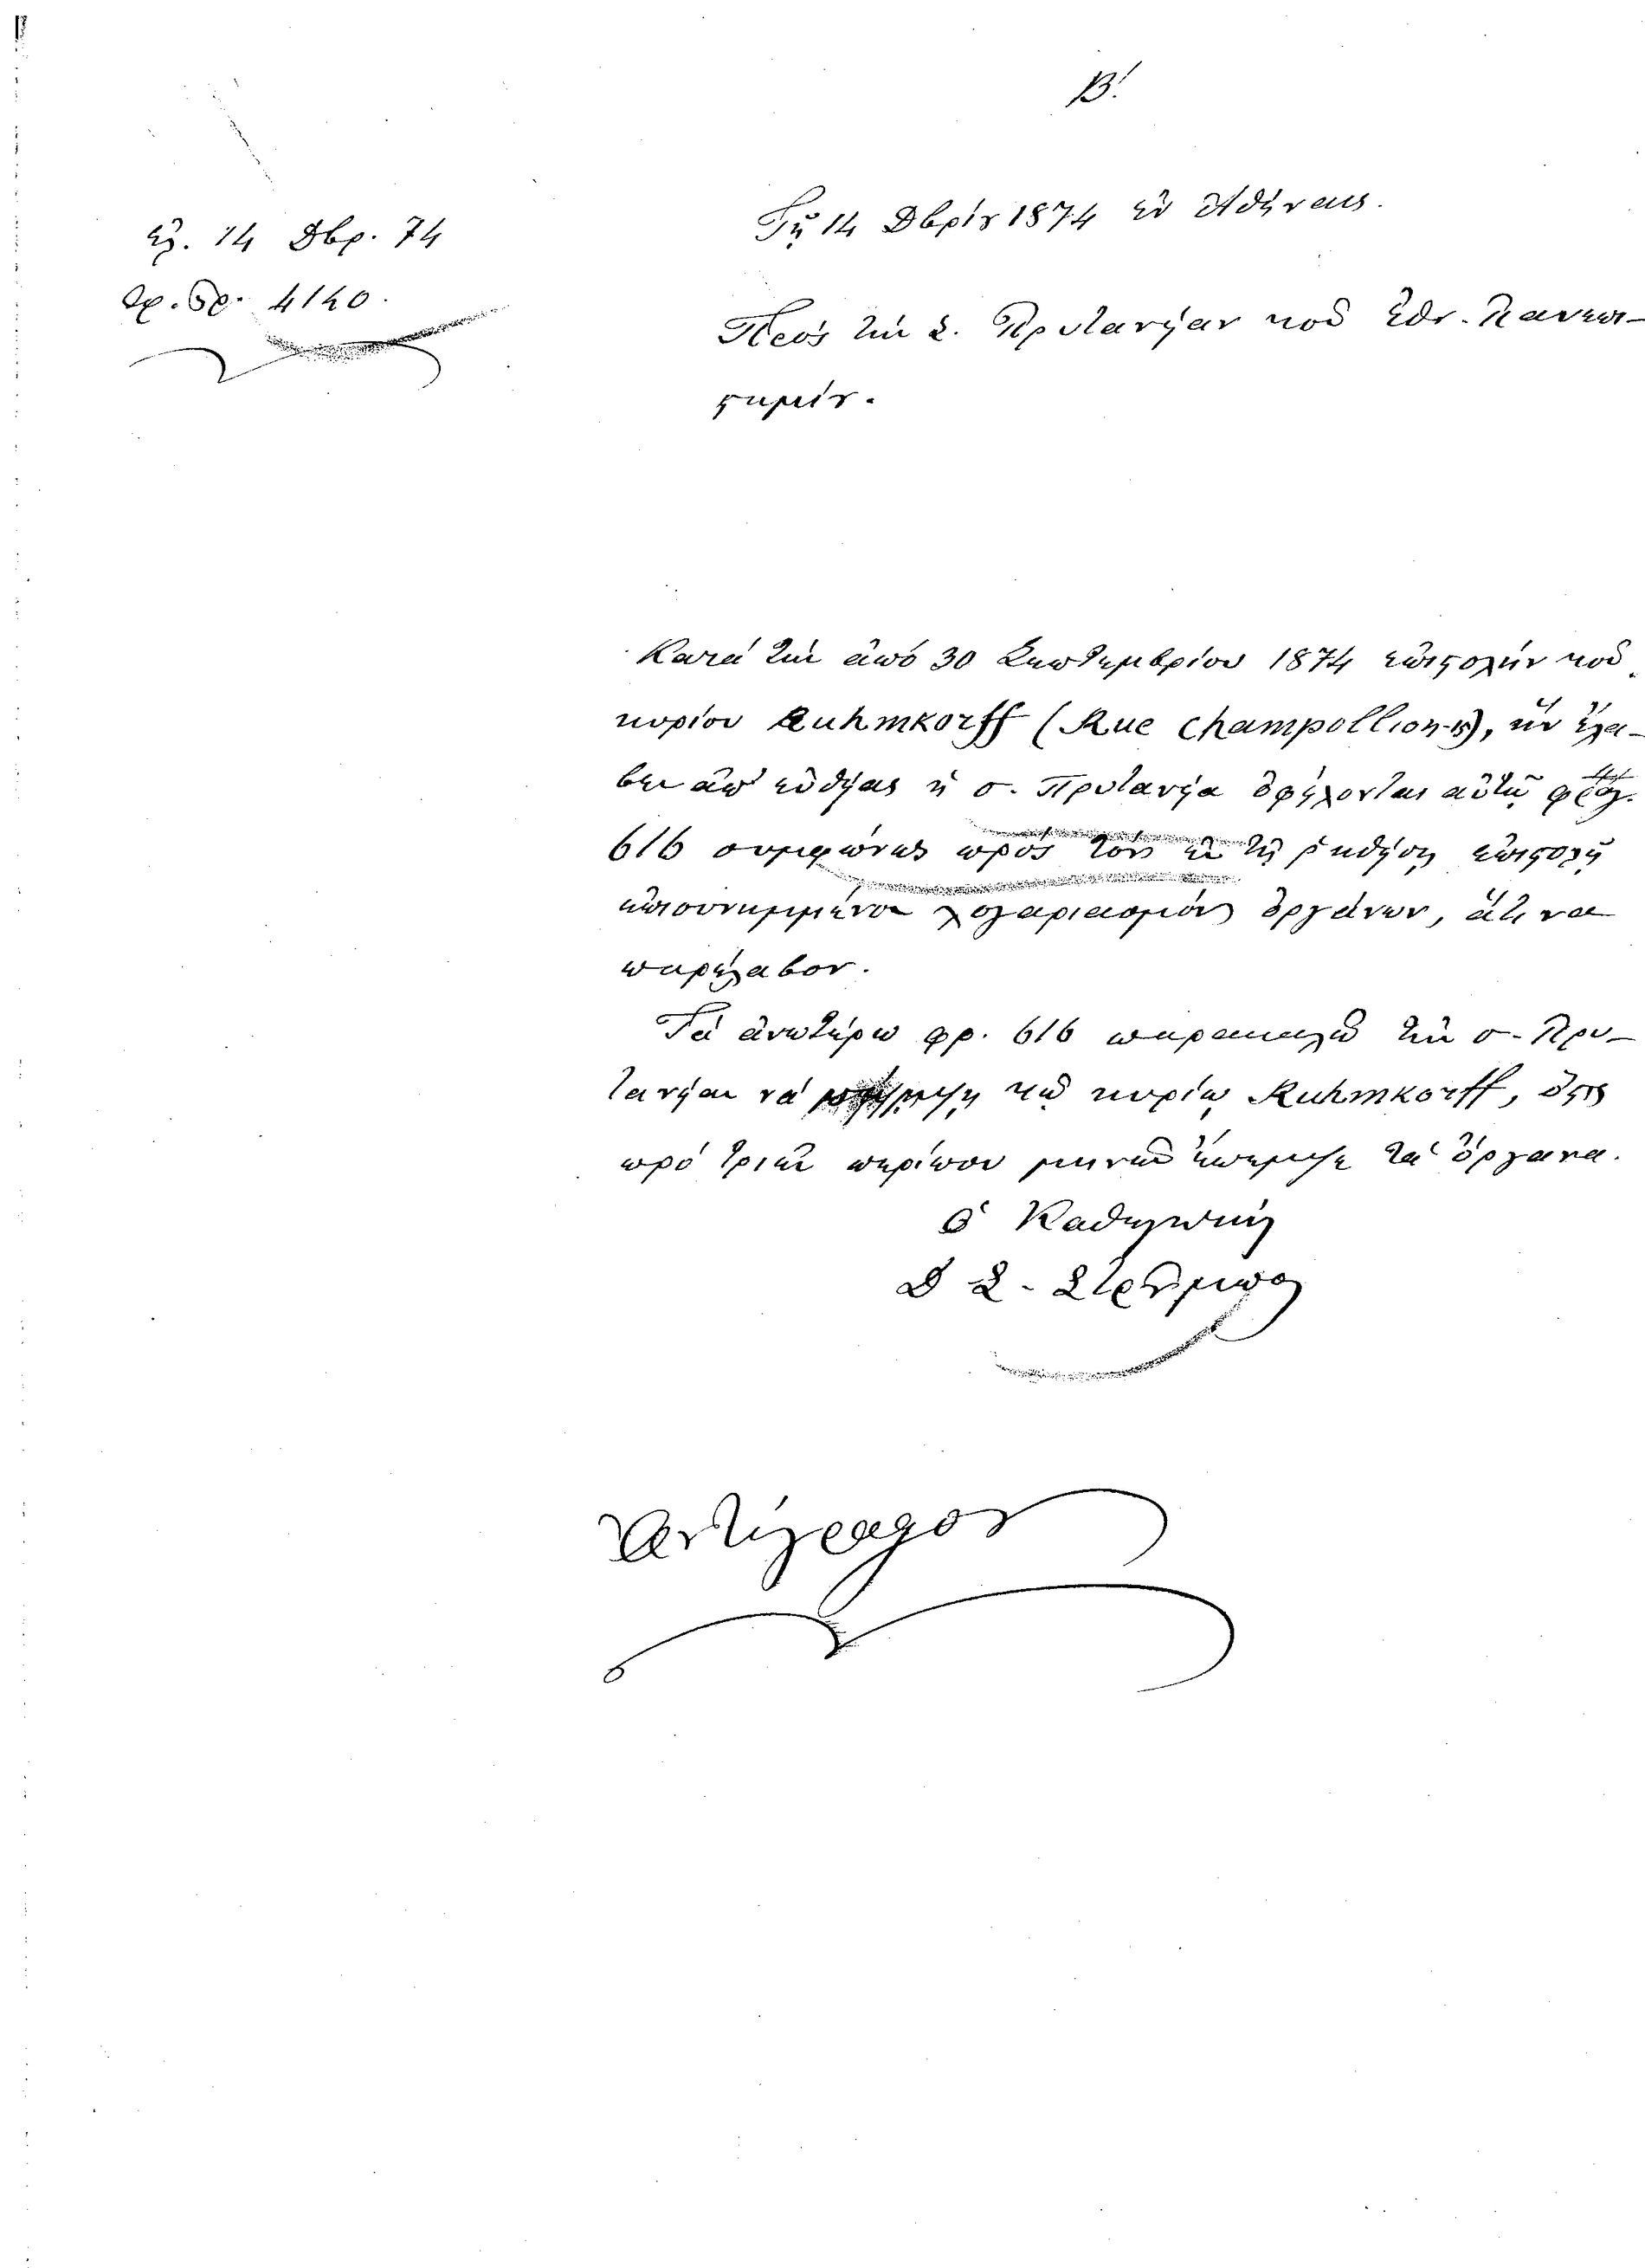 Β!
ἐλ. 14 Δβρ. 74
Ἀρ. Πρ. 4140.
Τῇ 14 Δβρίου 1874 ἐν Ἀθήναις.
Πρὸς τὴν Σ. Πρυτανείαν τοῦ Ἐθν. Πανεπι-
στημίου.
Κατὰ τὴν ἀπὸ 30 Σεπτεμβρίου 1874 ἐπιστολὴν τοῦ
κυρίου Ruhmkorff (Rue Champollion-15), ἣν ἔλα-
βεν ἀπ' εὐθείας ἡ σ. Πρυτανεία ὀφείλονται αὐτῷ
616 συμφώνως πρὸς τὸν ἐν τῇ ῥηθείσῃ ἐπιστολῇ
ἐπισυνημμένον λογαριασμὸν ὀργάνων, ἅτινα
παρέλαβον.
Τὰ ἀνωτέρω φρ. 616 παρακαλῶ τὴν σ. Πρυ-
τανείαν νὰ πέμψῃ τῷ κυρίῳ Ruhmkorff, ὅστις
πρὸ τριῶν περίπου μηνῶν ἔπεμψε τὰ ὄργανα.
Ὁ Καθηγητὴς
Δ Σ. Στροῦμπος
Ἀντίγραφον